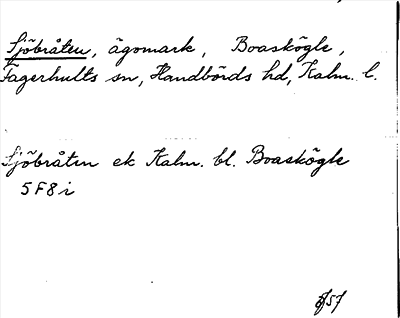 Sjöbråten, ägomark, Boaskögle,
Fagerhults sn, Handbörds hd, Kalm. l.
Sjöbråten ek Kalm. bl. Boaskögle
5F8i